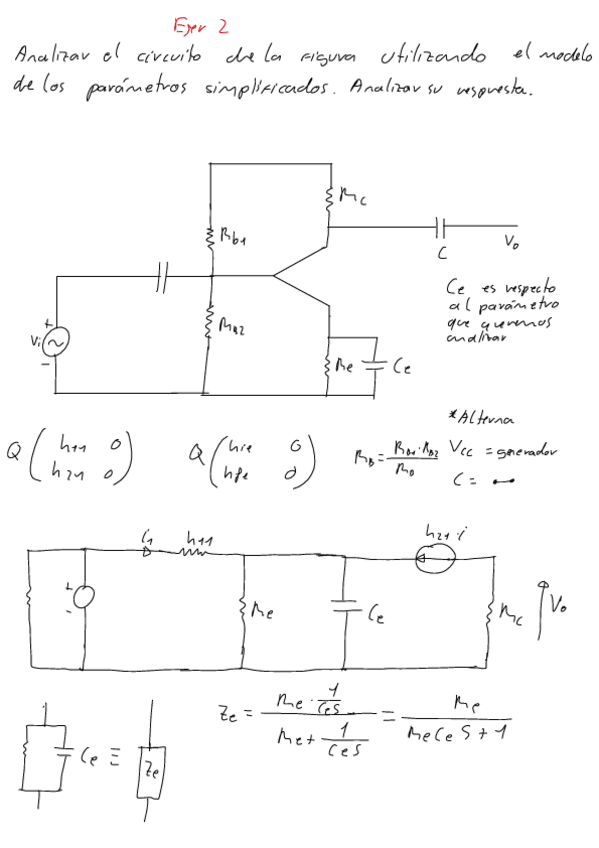 Ejer 2
Analizar el circuito de la figura utilizando el modelo
de los parámetros simplificados. Analizar su respuesta.
Rc
Rb1
C
Vo
Ce es respecto
al parámetro
que queremos
analizar
RB2
+
Vi
-
Re
Ce
*Alterna
Q ( h11 0
h21 0 )
Q ( hie 0
hfe 0 )
RB = RB1·RB2
Vcc = generador
C =
i1
h11
h21·i
+
-
Re
Ce
Rc
Vo
Ce ≡ Ze
Ze = Re · 1/CeS / Re + 1/CeS = Re / ReCeS + 1